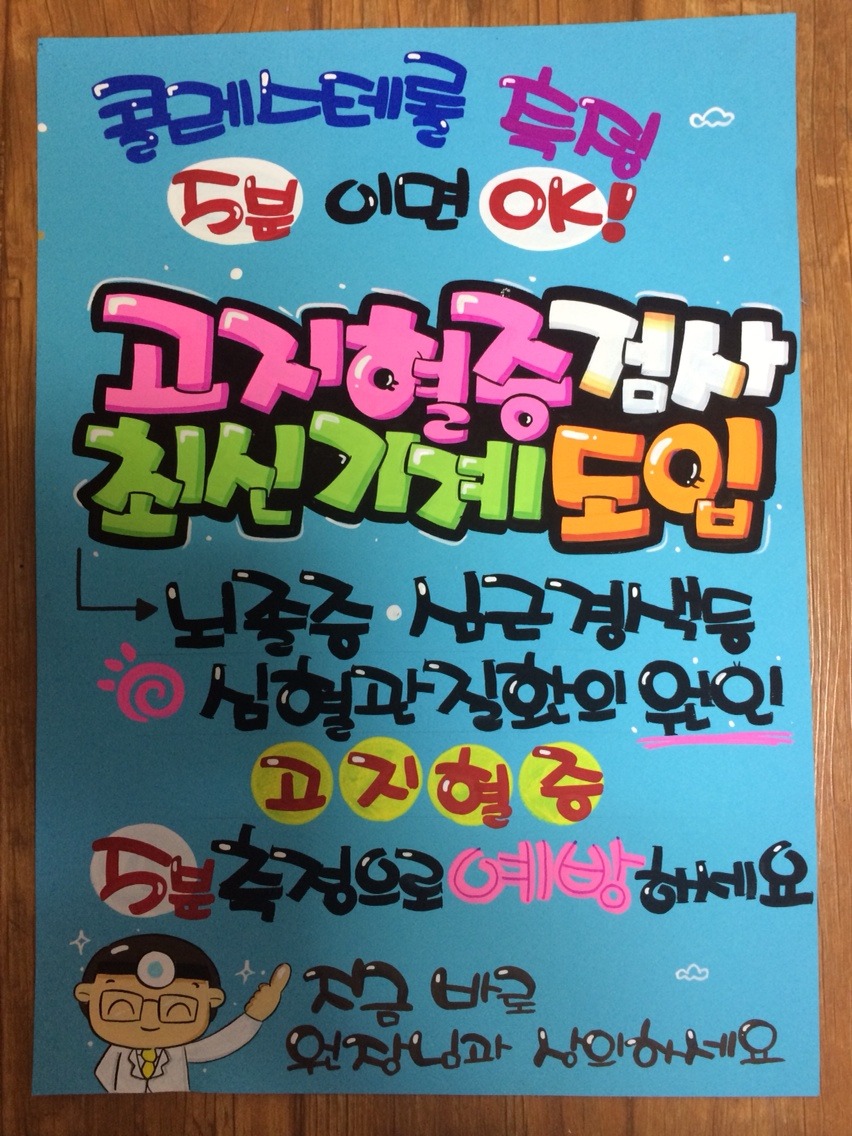 콜레스테롤 측정
5분 이면 OK!
고지혈증검사
최신기계도입
뇌졸증·심근경색등
심혈관질환의 원인
고지혈증
5분측정으로예방하세요
지금 바로
원장님과 상의하세요